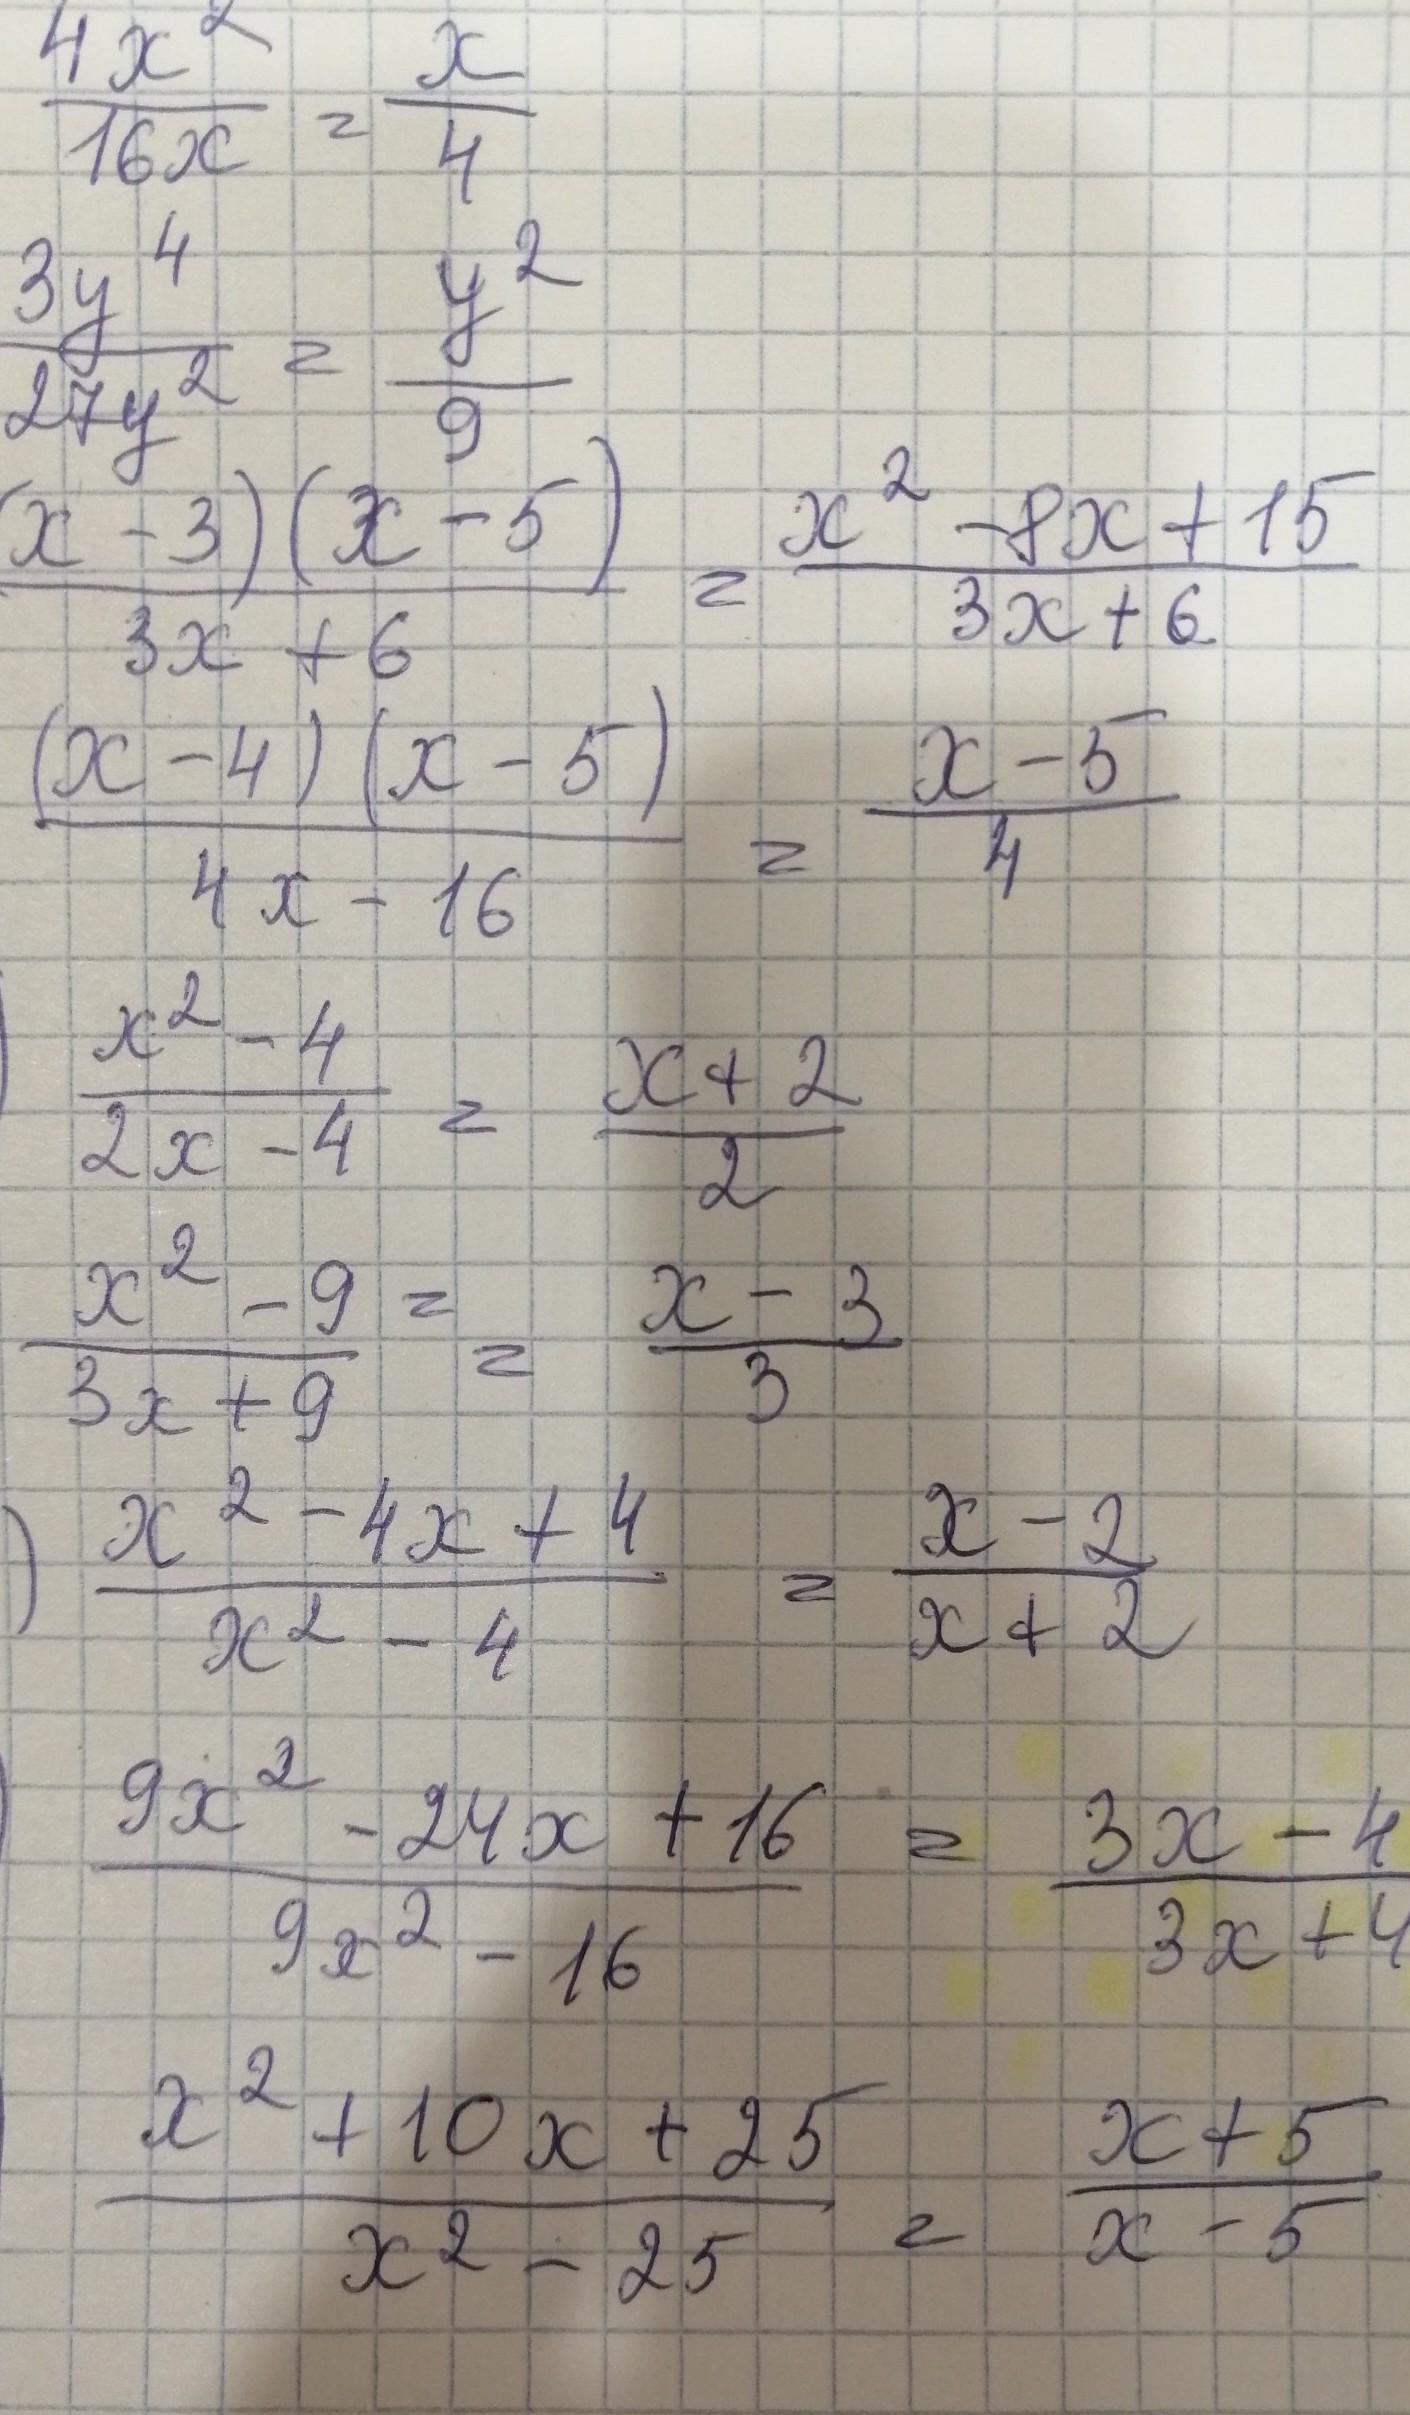 4x² / 16x = x / 4
3y⁴ / 27y² = y² / 9
(x - 3)(x - 5) / 3x + 6 = x² - 8x + 15 / 3x + 6
(x - 4)(x - 5) / 4x - 16 = x - 5 / 4
) x² - 4 / 2x - 4 = x + 2 / 2
x² - 9 / 3x + 9 = = x - 3 / 3
) x² - 4x + 4 / x² - 4 = x - 2 / x + 2
) 9x² - 24x + 16 / 9x² - 16 = 3x - 4 / 3x + 4
) x² + 10x + 25 / x² - 25 = x + 5 / x - 5